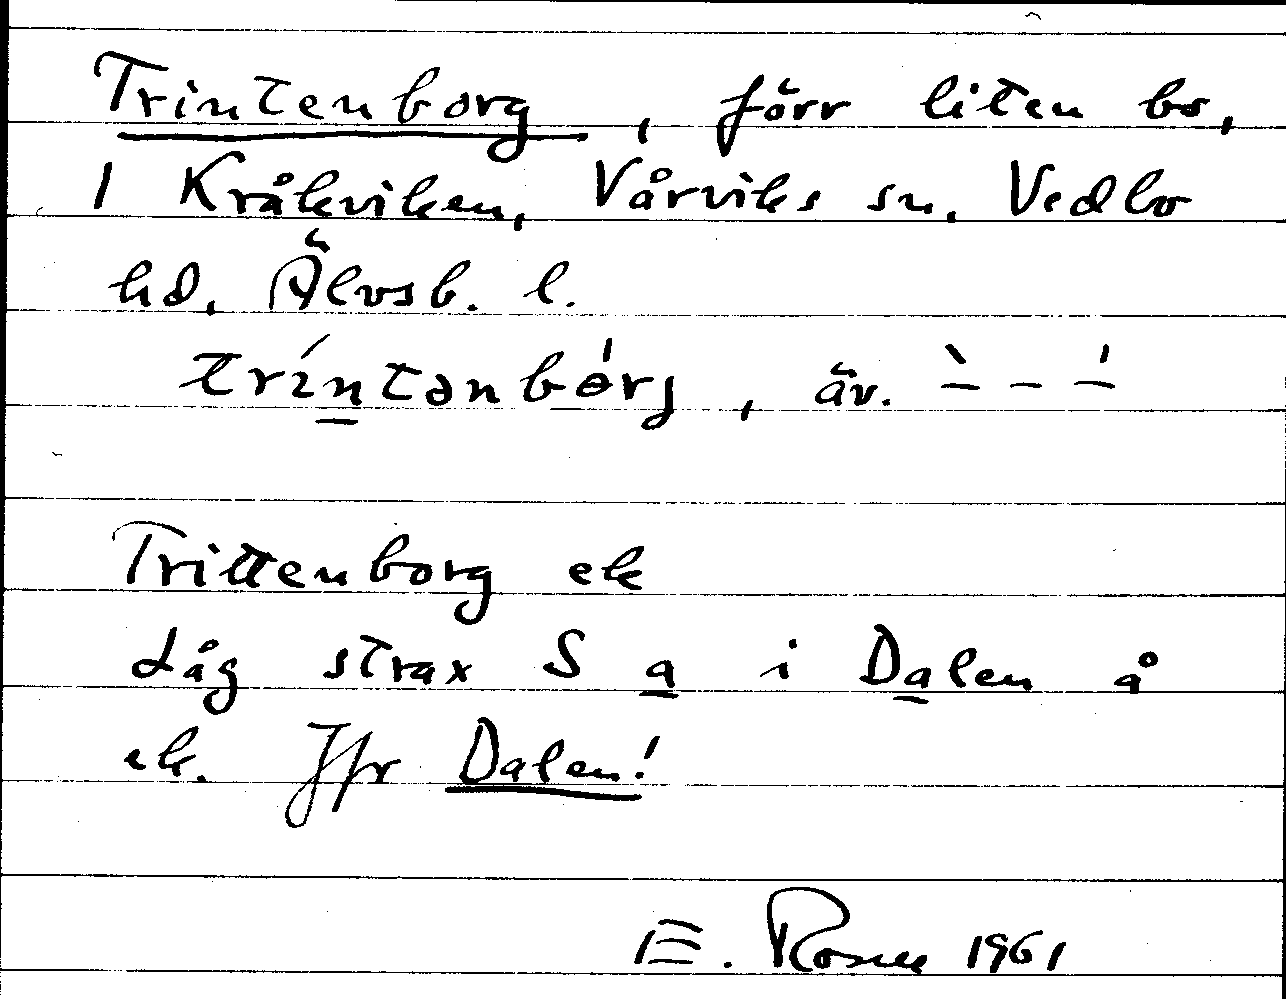 Trintenborg, förr liten bo,
1 Kråkviken, Vårviks sn. Vedbo
hd. Älvsb. l.
tríntanbórg, äv. ̀– – –́
Trittenborg ek
Låg strax S a i Dalen å
ek. Jfr Dalen!
E. Rosell 1961